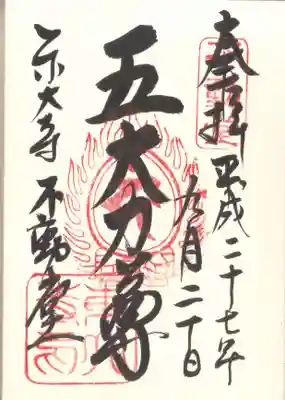 奉拝 平成二十七年
九月二十日
五大力尊
東大寺 不動堂